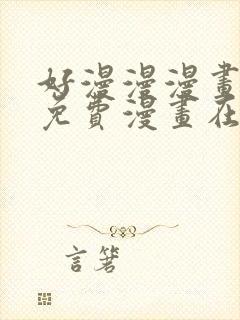 好漫漫漫畫
免費漫畫在
言箸